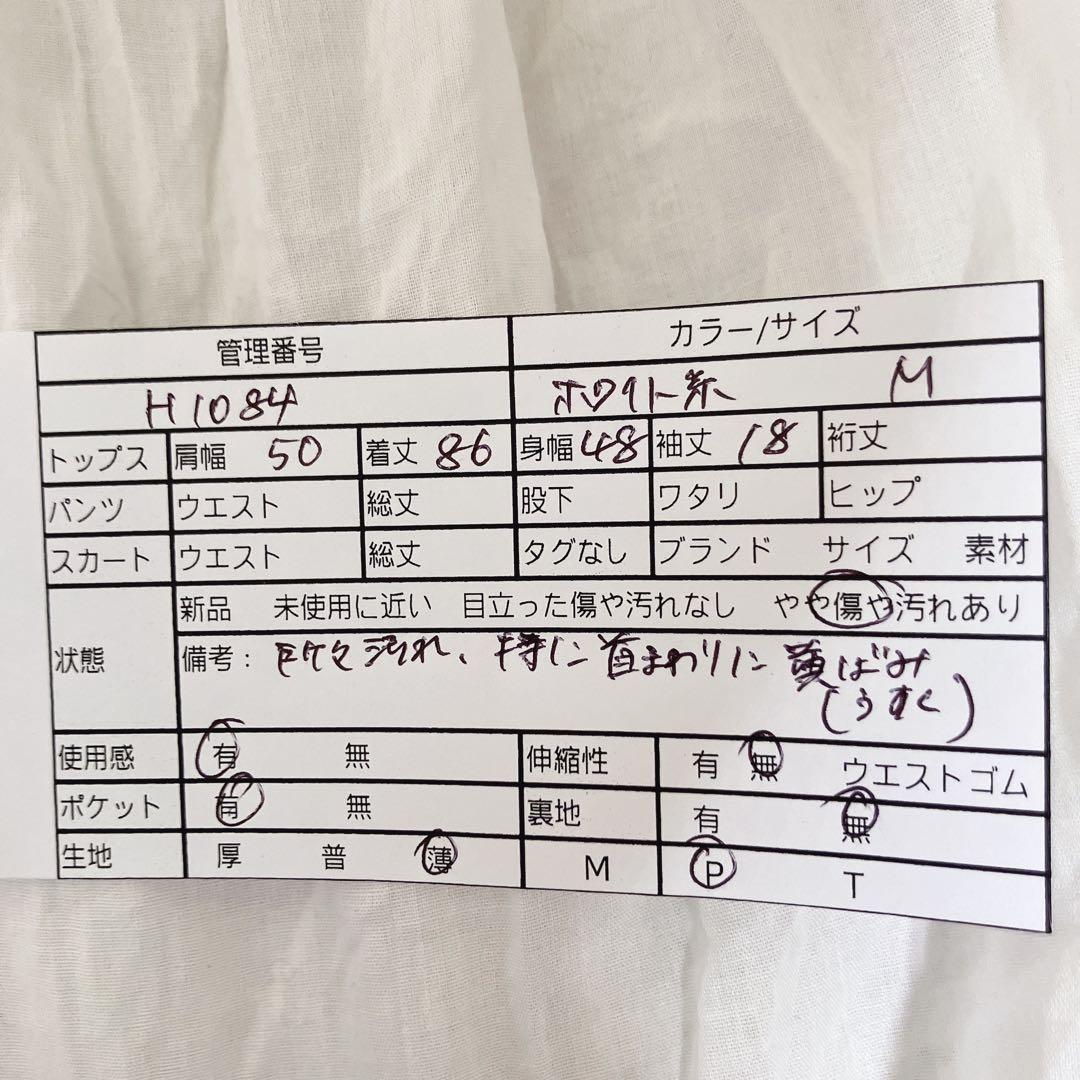 管理番号 カラー/サイズ
H1084 ホワイト系 M
トップス 肩幅 50 着丈 86 身幅 48 袖丈 18 裄丈
パンツ ウエスト 総丈 股下 ワタリ ヒップ
スカート ウエスト 総丈 タグなし ブランド サイズ 素材
状態 新品 未使用に近い 目立った傷や汚れなし やや傷や汚れあり
備考： 所々汚れ、特に首まわりに黄ばみ
(うすく)
使用感 有 無 伸縮性 有 無 ウエストゴム
ポケット 有 無 裏地 有 無
生地 厚 普 薄 M P T